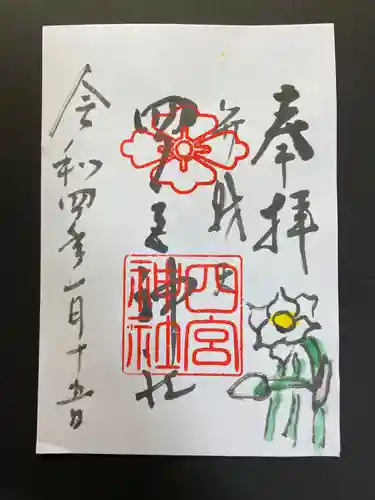 奉拝
四之宮神社
四宮神社
令和四年一月十五日